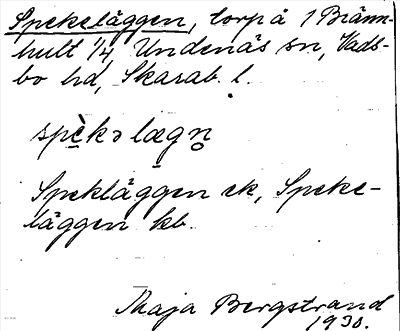 Spekeläggen, torp å 1 Bränn-
hult 1/4, Undenäs sn, Vads-
bo hd, Skarab. l.
spè̱kə læ̱gn̥
Spekläggen ek, Speke-
läggen kb.
Maja Bergstrand
1930.